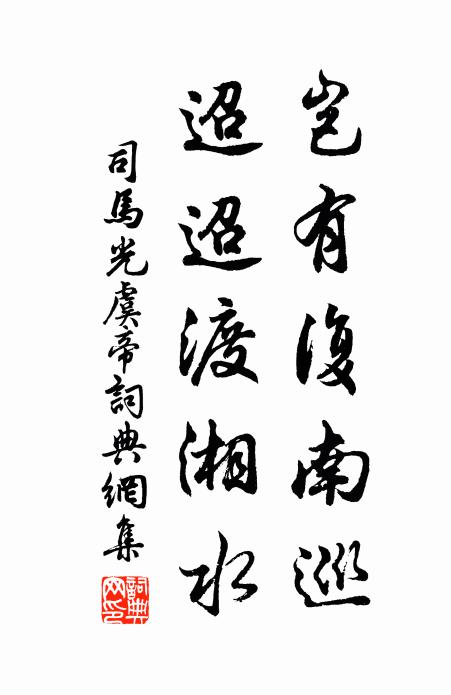 豈有復南巡
迢迢渡湘水
司馬光虞帝詞典網集
詞典網印